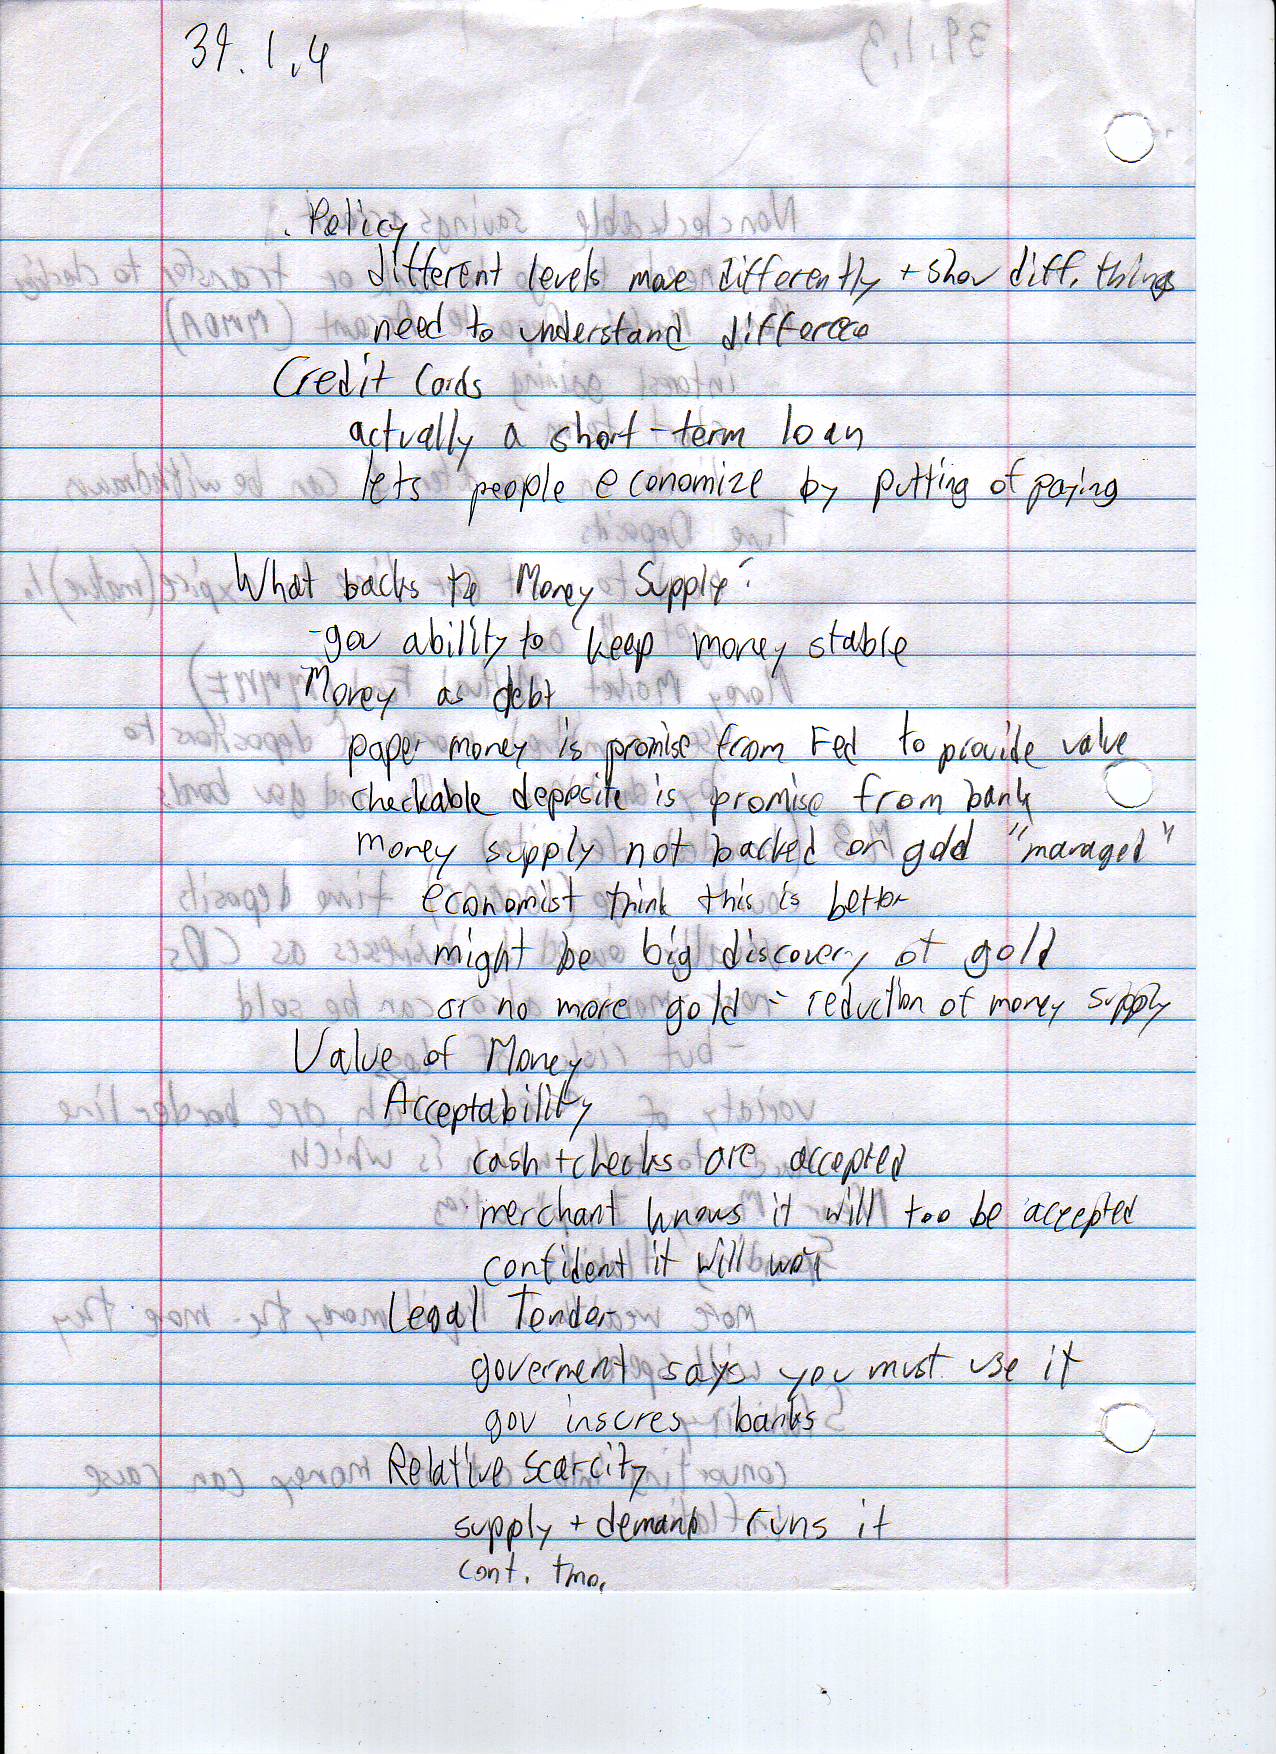 39.1.4
Policy
different levels move differently + show diff. things
need to understand differece
Credit Cards
actually a short-term loan
lets people economize by putting of paying
What backs the Money Supply?
-gov ability to keep money stable
Money as debt
paper money is promise from Fed to provide value
checkable deposite is promise from bank
money supply not backed on gold "managed"
economist think this is better
might be big discovery of gold
or no more gold = reduction of money supply
Value of Money
Acceptability
cash + checks are accepted
merchant knows it will too be accepted
confident it will work
Legal Tender
goverment says you must use it
gov insures banks
Relative Scarcity
supply + demand runs it
cont. tmo.